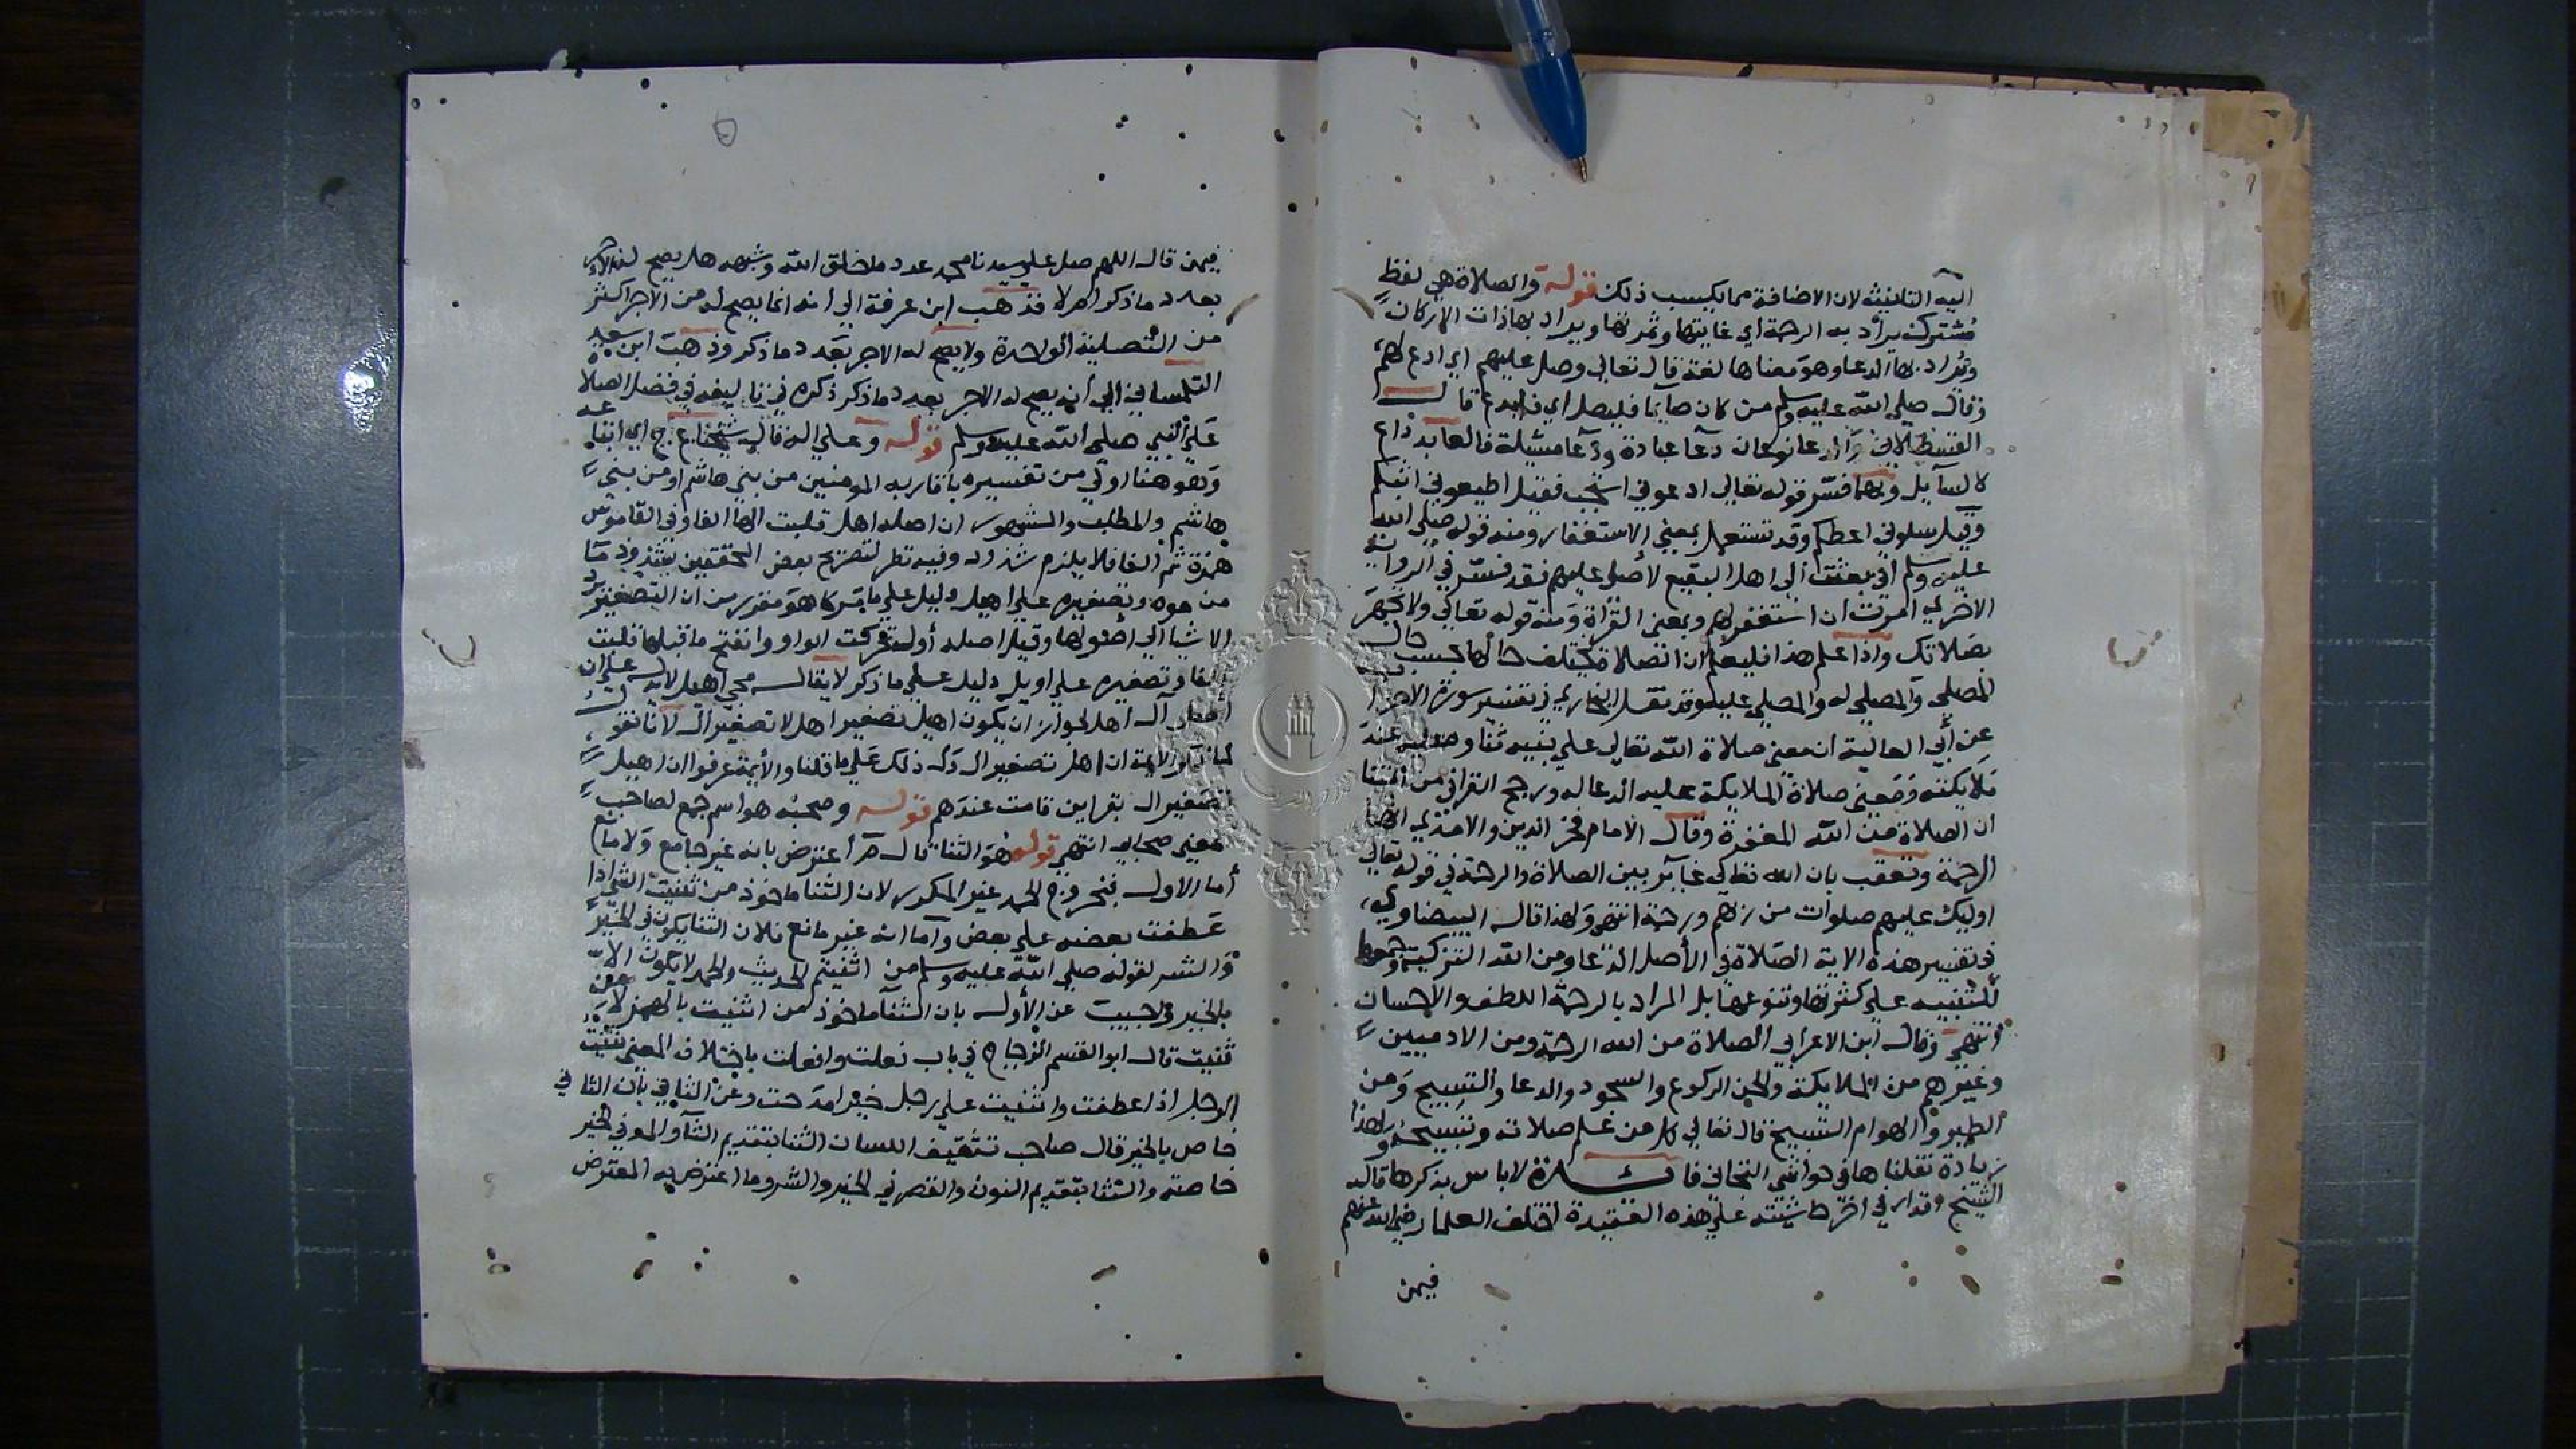 اليه التانيثه لان الاضافة مما يكسب ذلك قوله والصلاة هي لفظ
مشترك يراد به الرحمة اي غايتها وثمرتها ويراد بها ذات الاركان
ويراد بها الدعا وهو معناها لغة قال تعالى وصل عليهم اي ادع لهم
وقال صلى الله عليه وسلم من كان صايما فليصل اي فليدع قال
القسطلاني والدعا نوعان دعا عبادة ودعا مسئلة فالعابد داع
كالسايل وبهما فسر قوله تعالى ادعوني استجب فقيل اطيعوني اثبكم
وقيل سلوني اعطكم وقد تستعمل بمعنى الاستغفار ومنه قوله صلى الله
عليه وسلم اني بعثت الى اهل البقيع لاصلي عليهم فقد فسر في الرواية
الاخرى امرت ان استغفر لهم وبمعنى القراة ومنه قوله تعالى ولا تجهر
بصلاتك واذا علم هذا فليعلم ان الصلاة يختلف حالها بحسب حال
المصلي والمصلى له والمصلى عليه وقد نقل البخاري في تفسير سورة الاحزا
عن أبي العالية ان معنى صلاة الله تعالى على نبيه ثناوه عليه عند
ملايكته ومعنى صلاة الملايكة عليه الدعا له ورجح القرافي من ائمتنا
ان الصلاة من الله المغفرة وقال الامام فخر الدين والامدي انها
الرحمة وتعقب بان الله تعالى غاير بين الصلاة والرحمة في قوله تعالى
اوليك عليهم صلوات من ربهم ورحمة انتهى ولهذا قال البيضاوي
في تفسير هذه الاية الصلاة في الأصل الدعا ومن الله التزكية وجمعها
للتنبيه على كثرتها وتنوعها بل المراد بالرحمة اللطف والاحسان
انتهى وقال ابن الاعرابي الصلاة من الله الرحمة ومن الادميين
وغيرهم من الملايكة والجن الركوع والسجود والدعا والتسبيح ومن
الطير والهوام التسبيح قال تعالى كل من علم صلاته وتسبيحه ولهذا
زيادة نقلناها في حواشي فائدة لا باس بذكرها قال
الشيخ في اخر حاشيته على هذه العقيدة اختلف العلما رضي الله عنهم
فيمن
فيمن قال اللهم صل على سيدنا محمد عدد ما خلق الله وشبهه هل يصح له الاجر
بعدد ما ذكر ام لا فذهب ابن عرفة الى انه انما يصح له من الاجر اكثر
من التصلية الواحدة ولا يصح له الاجر بعدد ما ذكر وذهب ابن سعيد
التلمساني الى أنه يصح له الاجر بعدد ما ذكر ذكره في تاليفه في فضل الصلاة
على النبي صلى الله عليه وسلم قوله وعلى اله قال شيخنا ع ج اي اتباعه
وهو هنا اولى من تفسيره باقاربه المومنين من بني هاشم او من بني
هاشم والمطلب والمشهور ان اصله اهل قلبت الها الفا وفي القاموس
همزة ثم الفا فلا يلزم شذوذه وفيه نظر لتصريح بعض المحققين بشذوذ ما
من موه وتصغيره على اهيل دليل على ما مر كما هو مقرر من ان التصغير يرد
الاشيا الى أصولها وقيل اصله أول تحركت الواو وانفتح ما قبلها قلبت
الفا وتصغيره على اويل دليل على ما ذكر لا يقال مجي اهيل لا يدل على ان
أصل آل اهل لجواز ان يكون اهيل تصغير اهل لا تصغير ال لانا نقول
لما ذكر الايمة ان اهيل تصغير ال دل ذلك على ما قلنا والأيمة عرفوا ان اهيل
تصغير ال بقراين قامت عندهم قوله وصحبه هو اسم جمع لصاحب
بمعنى صحابي انتهى قوله هو الثنا قال اعترض بانه غير جامع ولا مانع
أما الاول فيخرج الحمد غير المكرر لان الثنا ماخوذ من ثنيت الشي اذا
عطفت بعضه على بعض واما انه غير مانع فلان الثنا يكون في الخير
والشر لقوله صلى الله عليه وسلم من اثنيتم الحديث والحمد لا يكون الا
بالخير فاجيب عن الأول بان الثنا ماخوذ من اثنيت بالهمز لا من
ثنيت قال ابو القسم الزجاج في باب فعلت وافعلت باختلاف المعنى ثنيت
الرجل اذا عطفت واثنيت على رجل خيرا مدحت وعن الثاني بأن الثنا في
خاص بالخير قال صاحب تثقيف اللسان الثنا بتقديم الثا والمد في الخير
خاصة والنثا بتقديم النون والقصر في الخير والشر وما اعترض به المعترض